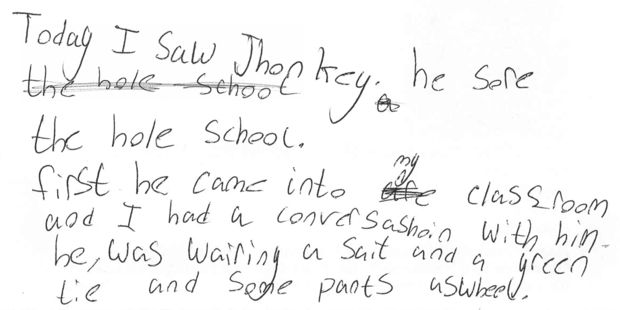 Today I Saw Jhon key. he sore
the hole school
the hole school.
first he came into my classroom
and I had a conversashoin with him.
he, was wairing a suit and a green
tie and some pants aswheel.